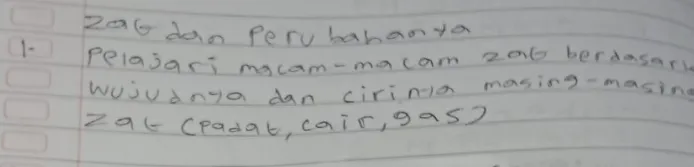 zat dan Perubahanya
1. Pelajari macam-macam zat berdasark
wujudnya dan cirinya masing-masing
zat (padat, cair, gas)